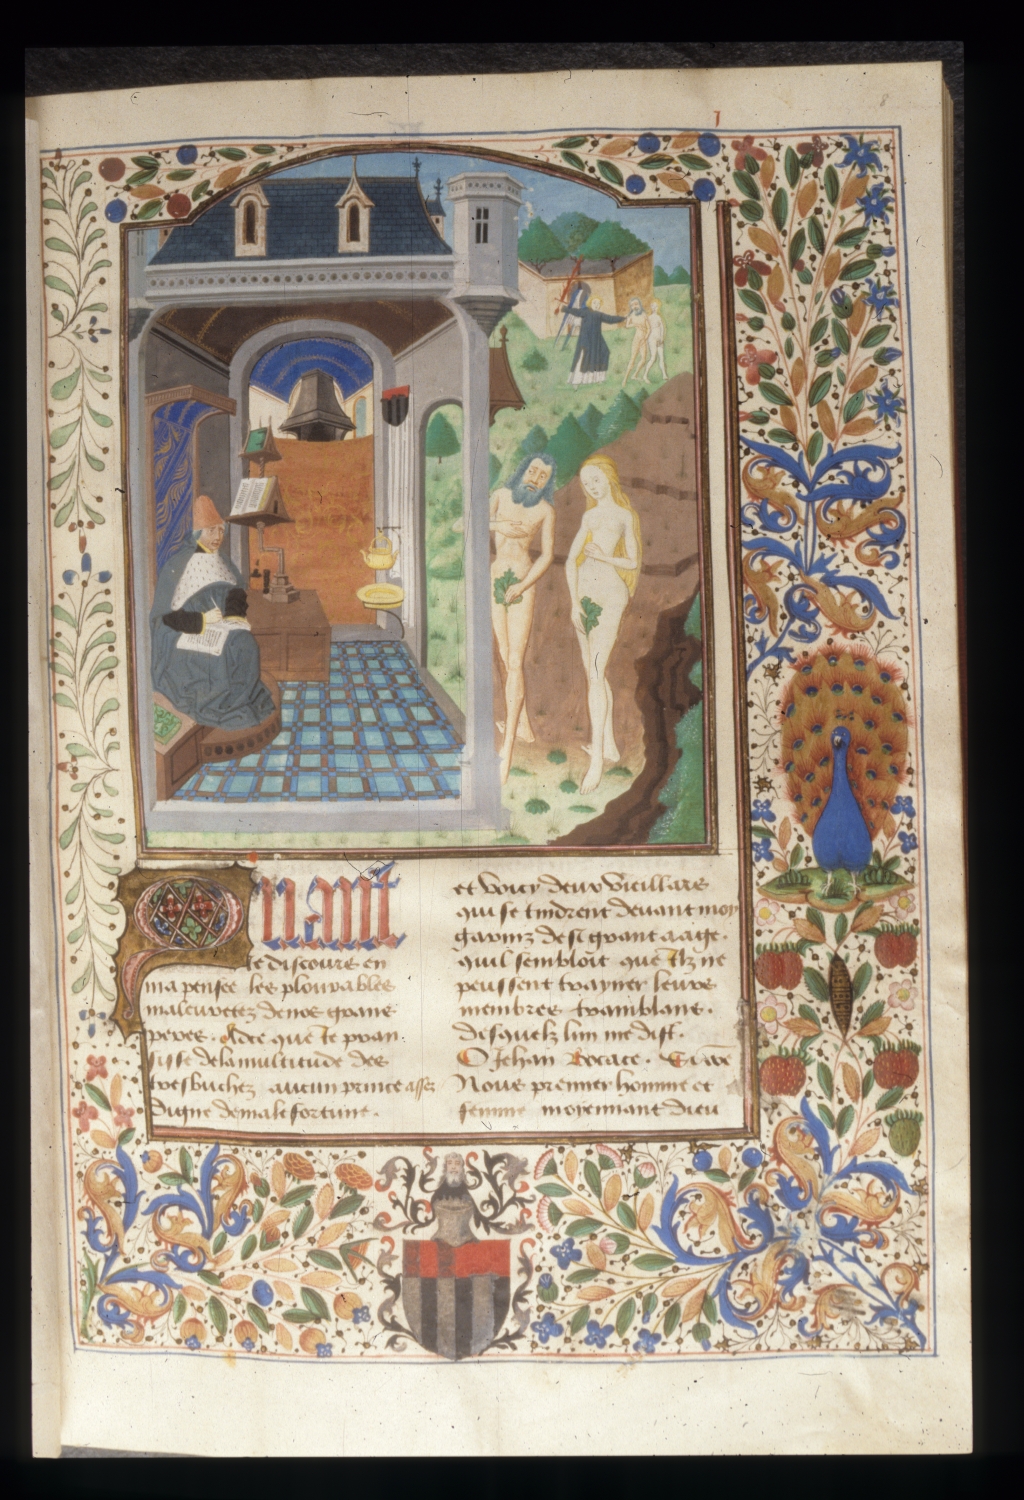 Quant
Je discoure en
ma pensee les plourables
maleuretez de nos grans
peres. Adce que Je pran
sisse de la multitude des
tresbuchez aucun prince assez
Digne de male fortune.
et voicy deux vieillars
qui se tindrent devant moy
garniz de si grant aage.
quil sembloit que Ilz ne
peussent trayner leurs
membres tramblans.
Desquelz lun me dist.
O Jehan Bocace.
Nous premier homme et
femme moyennant dieu